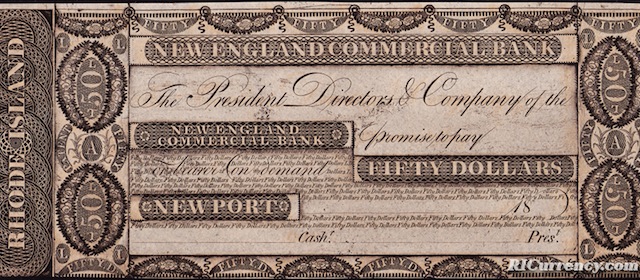 RHODE ISLAND
FIFTY FIFTY FIFTY
L L L L
50 50
NEW ENGLAND COMMERCIAL BANK
The President Directors & Company of the
NEW ENGLAND
COMMERCIAL BANK
promise to pay
A A
to bearer on demand
FIFTY DOLLARS
Fifty Dollars Fifty Dollars Fifty Dollars Fifty Dollars
NEWPORT
18
50 50
Cash.r Pres.t
L L L
FIFTY D
RICurrency.com